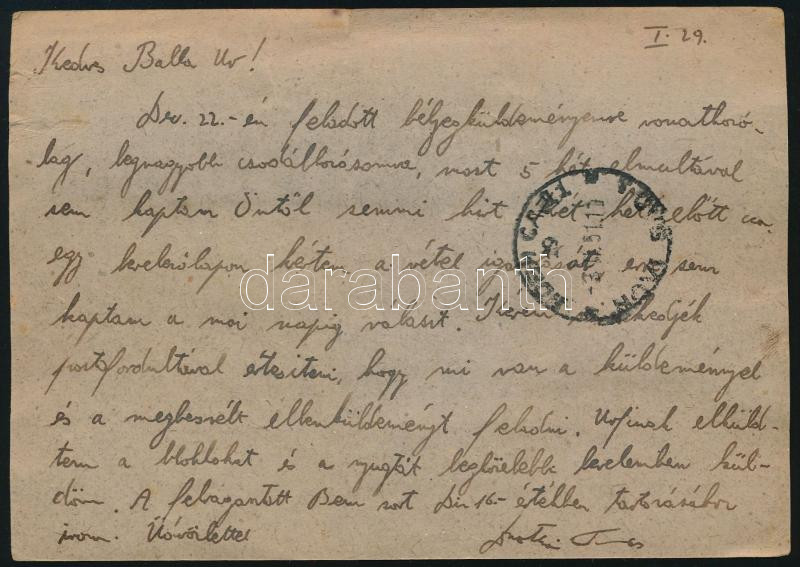 I. 29.
Kedves Balla Úr!
Dec. 22.-én feladott bélyegküldeményemre vonatkozó-
lag, legnagyobb csodálkozásomra, most 5 hét elmultával
sem kaptam Öntől semmi hírt két hét előtt
egy levelezőlapon kértem a vétel igazolását, erre sem
kaptam a mai napig választ. Kérem
postafordultával értesiteni, hogy mi van a küldeménnyel
és a megbeszélt ellenküldeményt feladni. Urfinak elküld-
tem a blokkokat és a nyugtát legközelebbi levelemben kül-
döm. A felragasztott Bem sort Din 16.- értékben tartozásához
irom. Üdvözlettel
darabanth